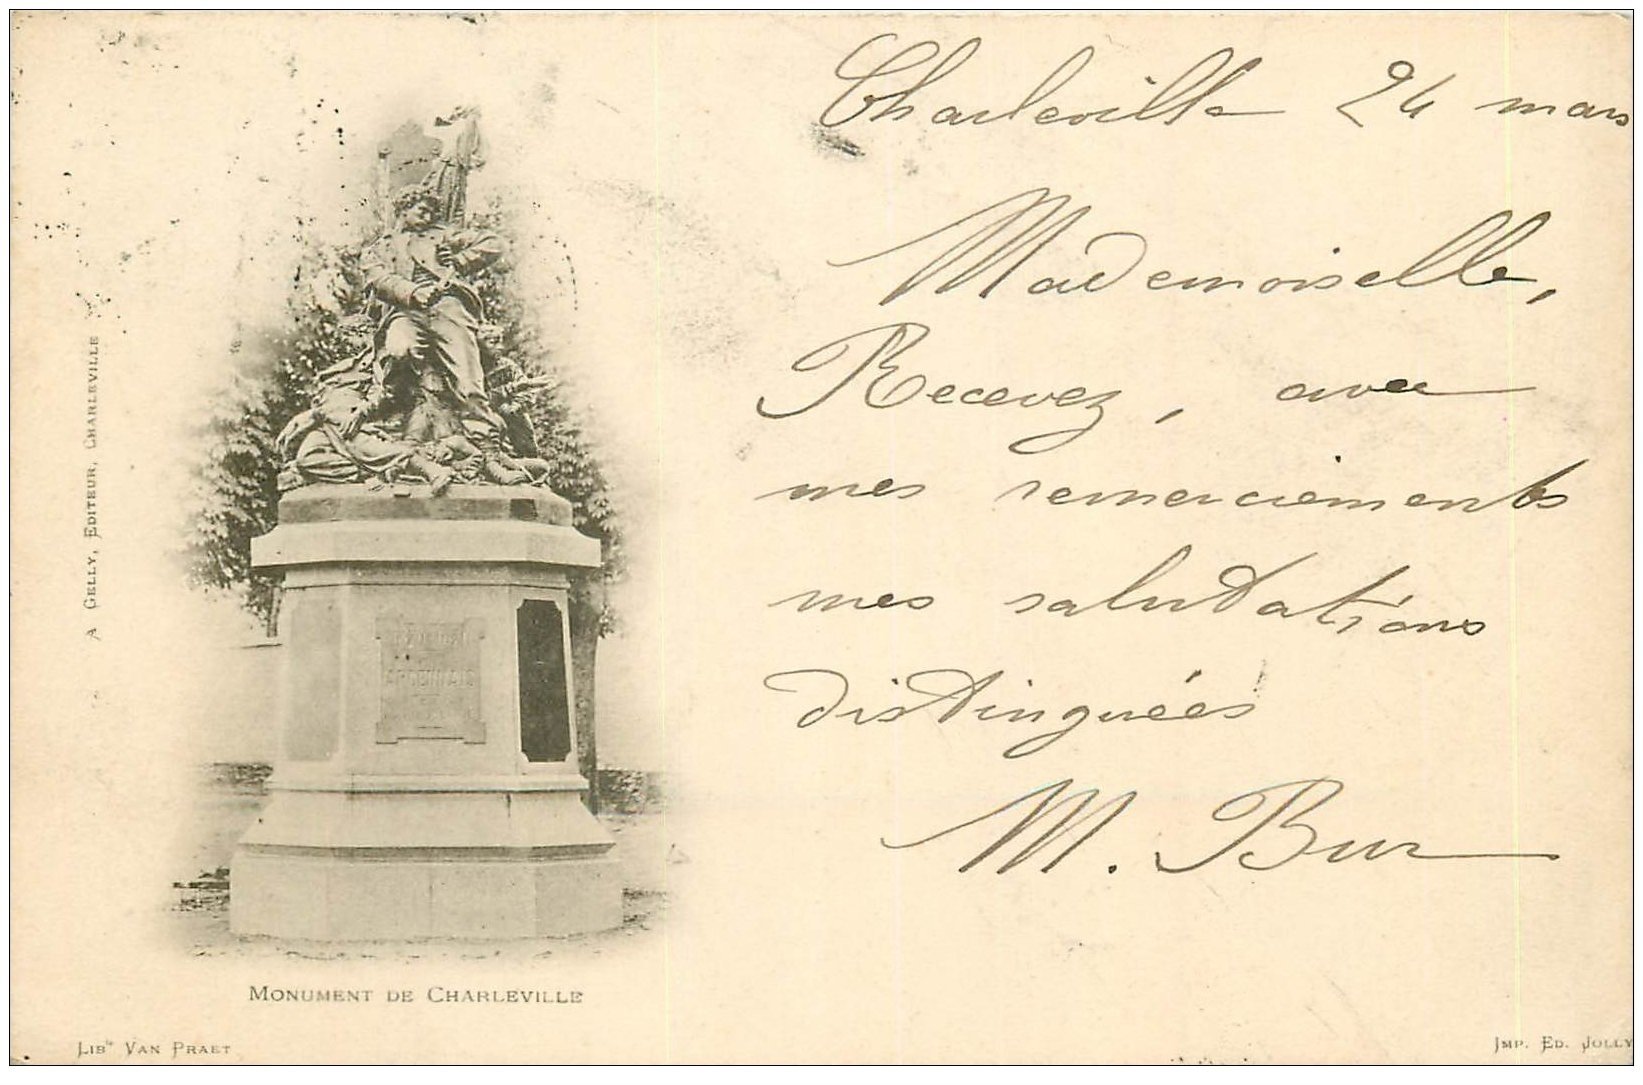 Charleville 24 mars
Mademoiselle,
Recevez, avec
mes remerciements
mes salutations
distinguées
M. Bur
A GELLY, EDITEUR, CHARLEVILLE
ARDENNAIS
MONUMENT DE CHARLEVILLE
LIB<sup>ie</sup> VAN PRAET
IMP. ED. JOLLY